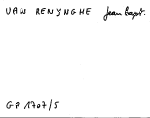 VAN RENYNGHE Jean Bapt.
GP 1707/5